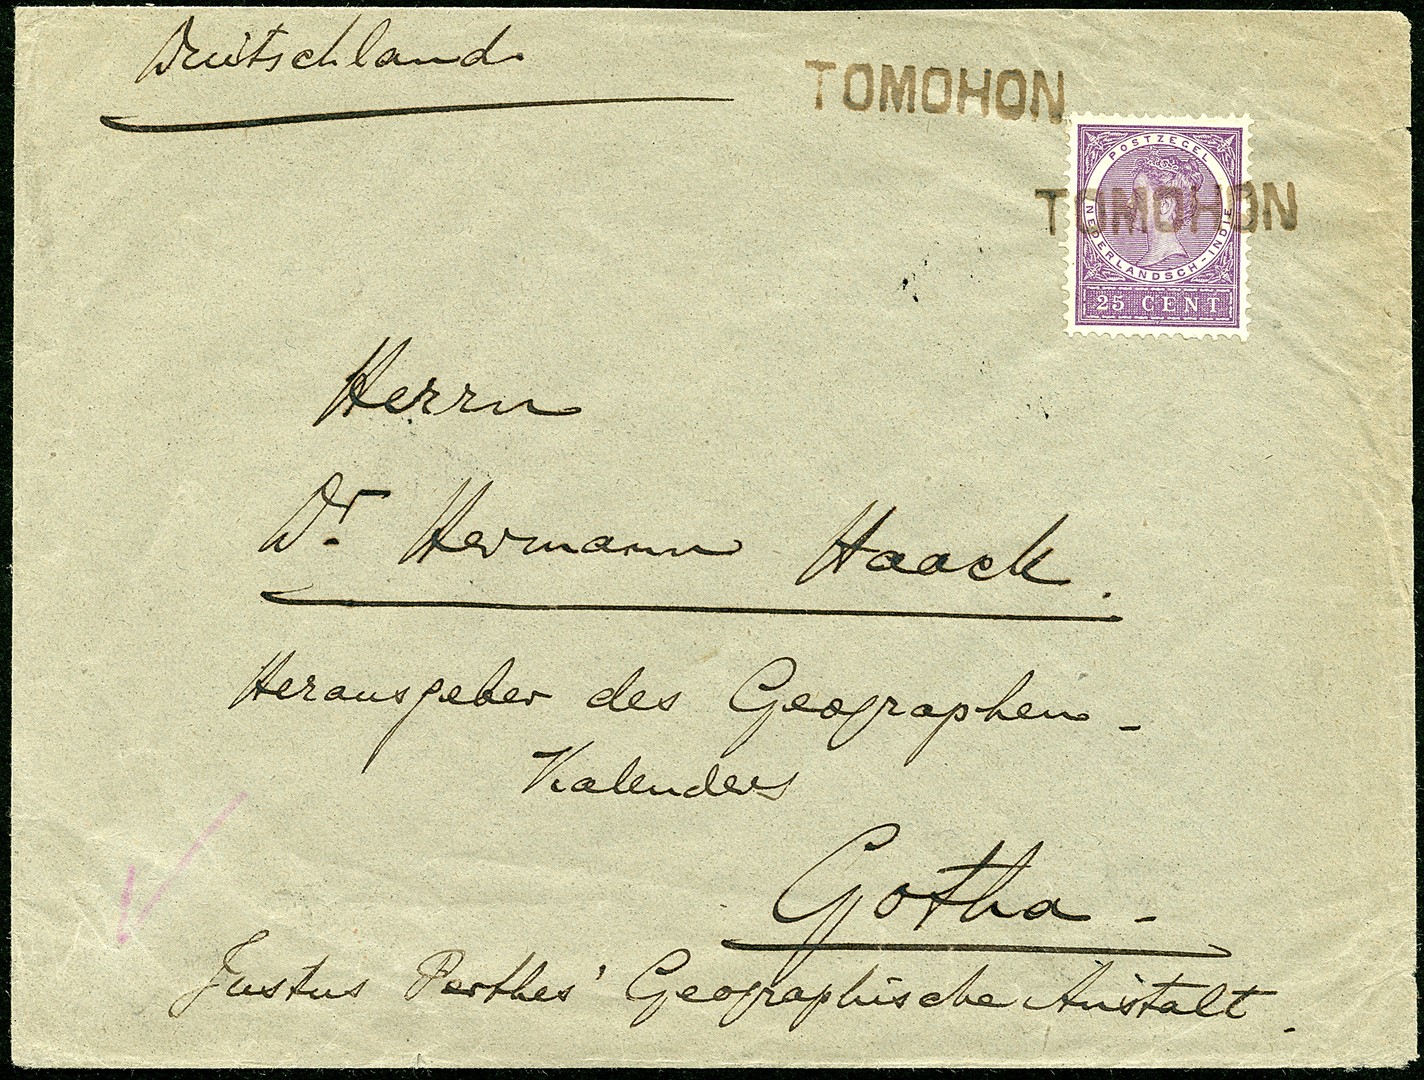 Deutschland
TOMOHON
POSTZEGEL
TOMOHON
NEDERLANDSCH-INDIE
25 CENT
Herrn
Dr. Hermann Haack.
Herausgeber des Geographen-
Kalenders
Gotha -
Justus Perthes' Geographische Anstalt.